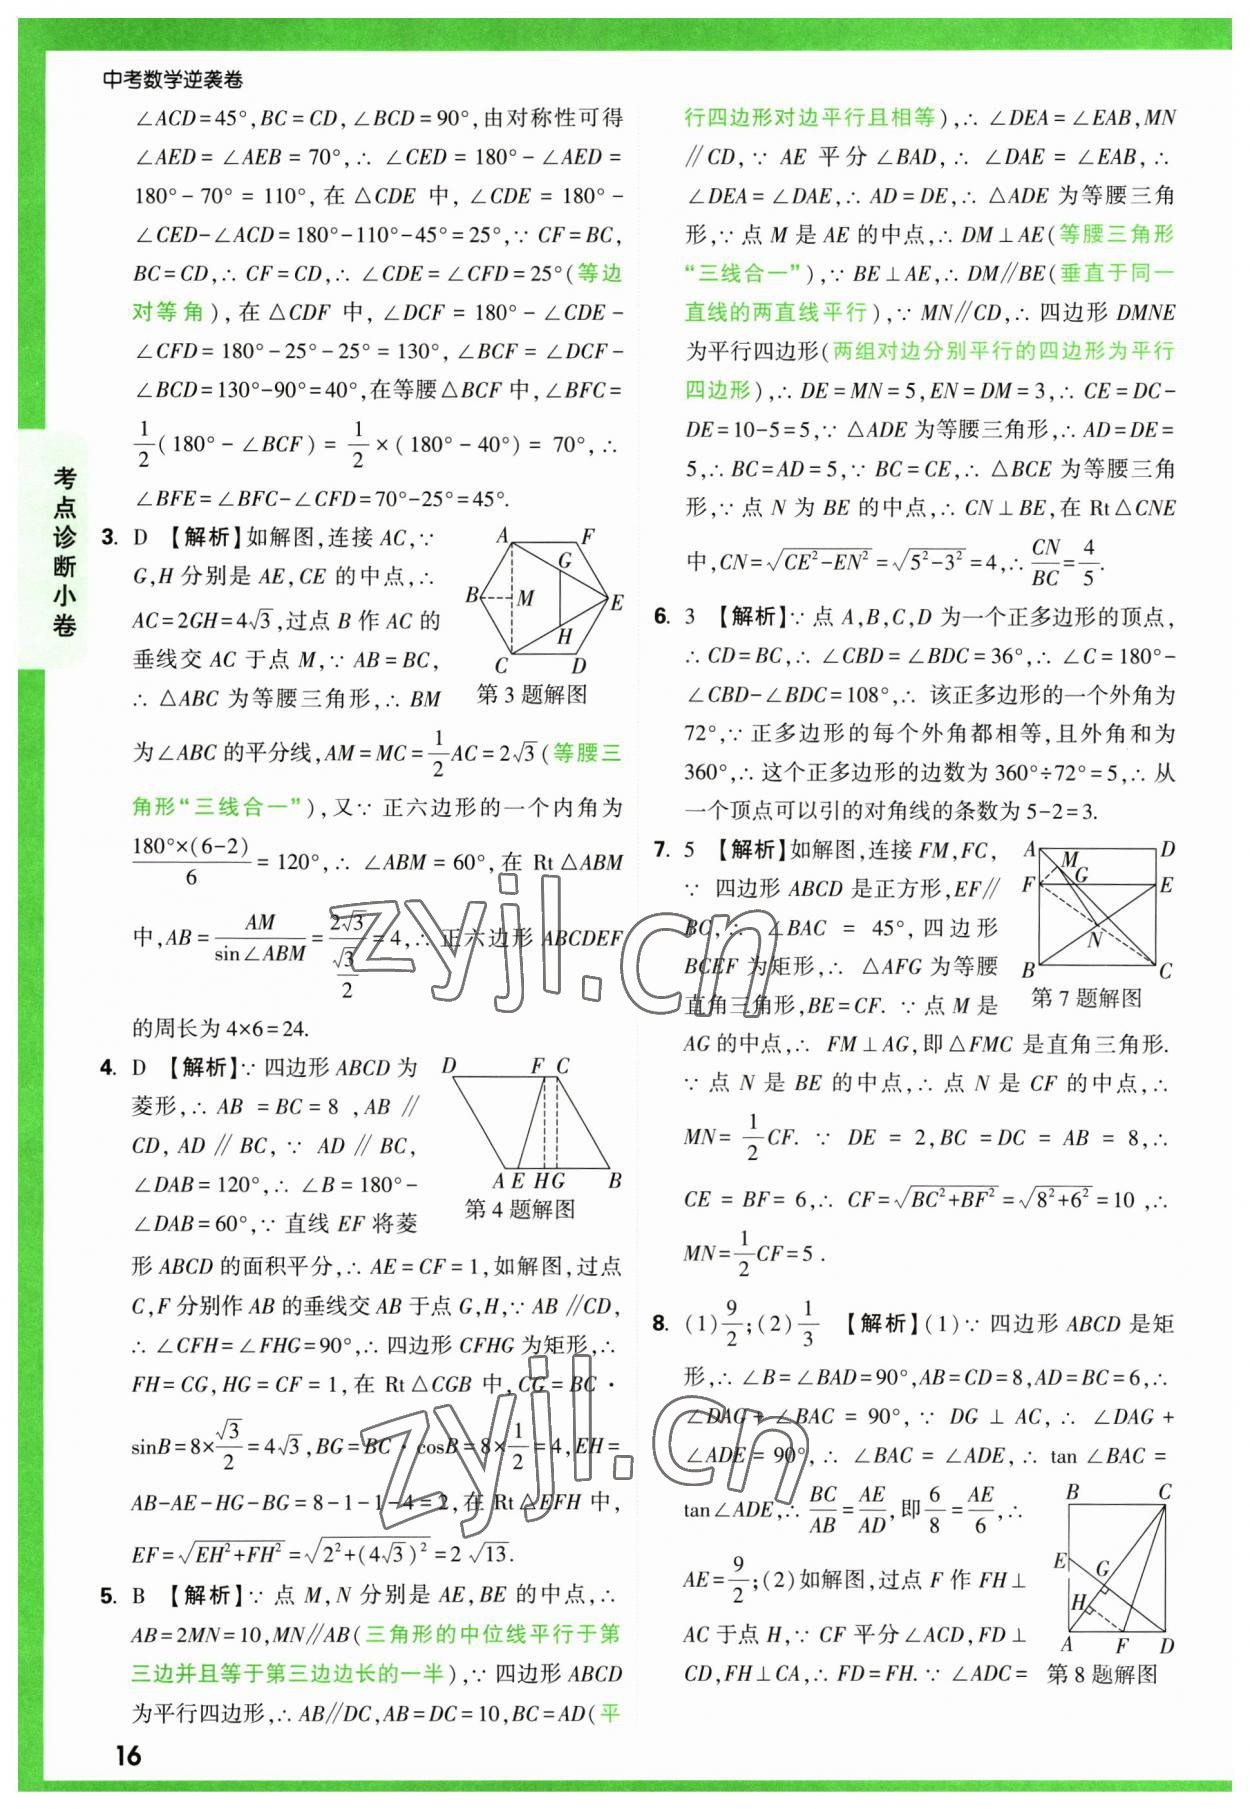 中考数学逆袭卷
∠ACD=45°,BC=CD,∠BCD=90°,由对称性可得
∠AED=∠AEB=70°,∴∠CED=180°-∠AED=
180°-70°=110°,在△CDE 中,∠CDE=180°-
∠CED-∠ACD=180°-110°-45°=25°,∵CF=BC,
BC=CD,∴CF=CD,∴∠CDE=∠CFD=25°(等边
对等角),在△CDF 中,∠DCF=180°-∠CDE-
∠CFD=180°-25°-25°=130°,∠BCF=∠DCF-
∠BCD=130°-90°=40°,在等腰△BCF 中,∠BFC=
1/2(180°-∠BCF)=1/2×(180°-40°)=70°,∴
∠BFE=∠BFC-∠CFD=70°-25°=45°.
3. D 【解析】如解图,连接 AC,∵
G,H 分别是 AE,CE 的中点,∴
AC=2GH=4√3,过点 B 作 AC 的
垂线交 AC 于点 M,∵AB=BC,
∴△ABC 为等腰三角形,∴BM
A F G B M E H C D
第 3 题解图
为∠ABC 的平分线,AM=MC=1/2AC=2√3(等腰三
角形“三线合一”),又∵正六边形的一个内角为
180°×(6-2)/6=120°,∴∠ABM=60°,在 Rt△ABM
中,AB=AM/sin∠ABM=2√3/(√3/2)=4,∴正六边形 ABCDEF
的周长为 4×6=24.
4. D 【解析】∵四边形 ABCD 为
菱形,∴AB=BC=8,AB∥
CD,AD∥BC,∵AD∥BC,
∠DAB=120°,∴∠B=180°-
∠DAB=60°,∵直线 EF 将菱
D F C
A E H G B
第 4 题解图
形 ABCD 的面积平分,∴AE=CF=1,如解图,过点
C,F 分别作 AB 的垂线交 AB 于点 G,H,∵AB∥CD,
∴∠CFH=∠FHG=90°,∴四边形 CFHG 为矩形,∴
FH=CG,HG=CF=1,在 Rt△CGB 中,CG=BC·
sinB=8×√3/2=4√3,BG=BC·cosB=8×1/2=4,EH=
AB-AE-HG-BG=8-1-1-4=2,在 Rt△EFH 中,
EF=√(EH²+FH²)=√(2²+(4√3)²)=2√13.
5. B 【解析】∵点 M,N 分别是 AE,BE 的中点,∴
AB=2MN=10,MN∥AB(三角形的中位线平行于第
三边并且等于第三边边长的一半),∵四边形 ABCD
为平行四边形,∴AB∥DC,AB=DC=10,BC=AD(平
行四边形对边平行且相等),∴∠DEA=∠EAB,MN
∥CD,∵AE 平分∠BAD,∴∠DAE=∠EAB,∴
∠DEA=∠DAE,∴AD=DE,∴△ADE 为等腰三角
形,∵点 M 是 AE 的中点,∴DM⊥AE(等腰三角形
“三线合一”),∵BE⊥AE,∴DM∥BE(垂直于同一
直线的两直线平行),∵MN∥CD,∴四边形 DMNE
为平行四边形(两组对边分别平行的四边形为平行
四边形),∴DE=MN=5,EN=DM=3,∴CE=DC-
DE=10-5=5,∵△ADE 为等腰三角形,∴AD=DE=
5,∴BC=AD=5,∵BC=CE,∴△BCE 为等腰三角
形,∵点 N 为 BE 的中点,∴CN⊥BE,在 Rt△CNE
中,CN=√(CE²-EN²)=√(5²-3²)=4,∴CN/BC=4/5.
6. 3 【解析】∵点 A,B,C,D 为一个正多边形的顶点,
∴CD=BC,∴∠CBD=∠BDC=36°,∴∠C=180°-
∠CBD-∠BDC=108°,∴该正多边形的一个外角为
72°,∵正多边形的每个外角都相等,且外角和为
360°,∴这个正多边形的边数为 360°÷72°=5,∴从
一个顶点可以引的对角线的条数为 5-2=3.
7. 5 【解析】如解图,连接 FM,FC,
∵四边形 ABCD 是正方形,EF∥
BC,∴∠BAC=45°,四边形
BCEF 为矩形,∴△AFG 为等腰
直角三角形,BE=CF.∵点 M 是
AG 的中点,∴FM⊥AG,即△FMC 是直角三角形.
A D M G F E N B C
第 7 题解图
∵点 N 是 BE 的中点,∴点 N 是 CF 的中点,∴
MN=1/2CF.∵DE=2,BC=DC=AB=8,∴
CE=BF=6,∴CF=√(BC²+BF²)=√(8²+6²)=10,∴
MN=1/2CF=5.
8. (1)9/2;(2)1/3 【解析】(1)∵四边形 ABCD 是矩
形,∴∠B=∠BAD=90°,AB=CD=8,AD=BC=6,∴
∠DAG+∠BAC=90°,∵DG⊥AC,∴∠DAG+
∠ADE=90°,∴∠BAC=∠ADE,∴tan∠BAC=
tan∠ADE,∴BC/AB=AE/AD,即6/8=AE/6,∴
AE=9/2;(2)如解图,过点 F 作 FH⊥
AC 于点 H,∵CF 平分∠ACD,FD⊥
CD,FH⊥CA,∴FD=FH.∵∠ADC=
B C E G H A F D
第 8 题解图
考点诊断小卷
16
zyjl.cn
zyjl.cn